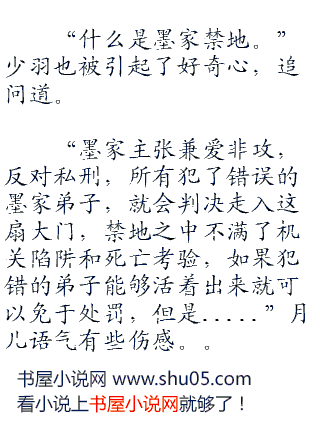 “什么是墨家禁地。”
少羽也被引起了好奇心，追
问道。
“墨家主张兼爱非攻，
反对私刑，所有犯了错误的
墨家弟子，就会判决走入这
扇大门，禁地之中不满了机
关陷阱和死亡考验，如果犯
错的弟子能够活着出来就可
以免于处罚，但是.....”月
儿语气有些伤感。。
书屋小说网 www.shu05.com
看小说上书屋小说网就够了！